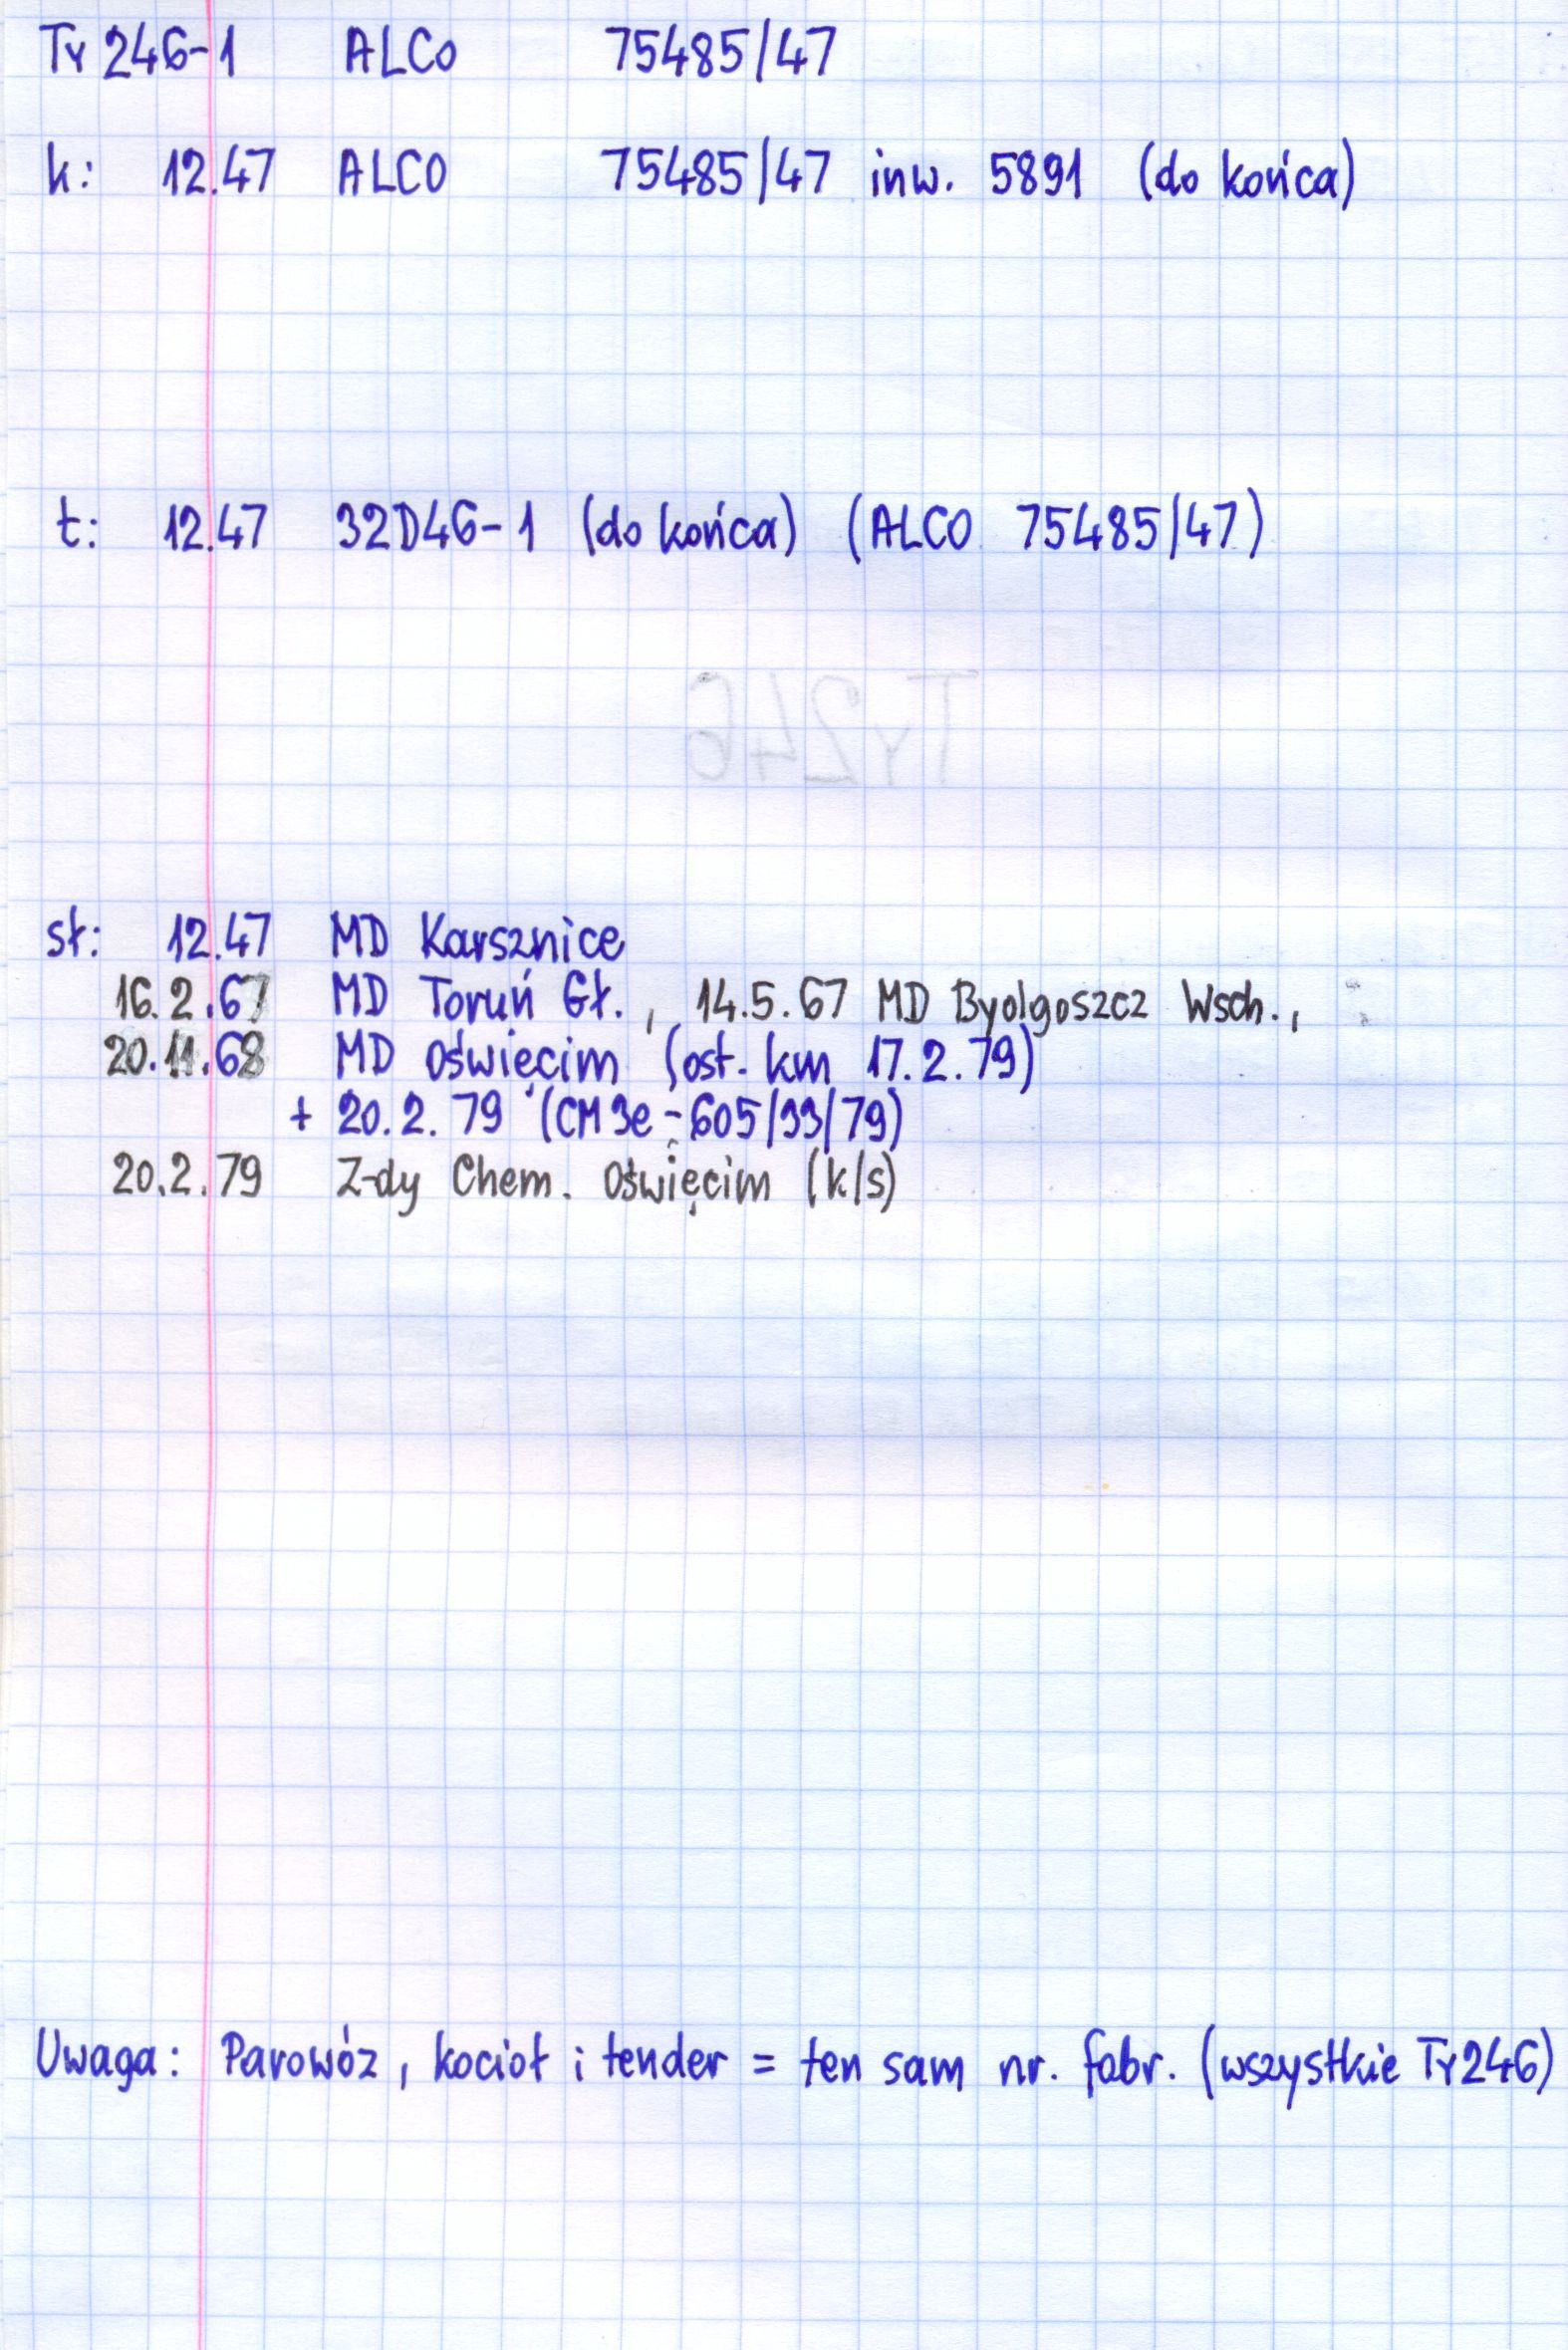 Ty 246-1 ALCo 75485/47
k: 12.47 ALCO 75485/47 inw. 5891 (do końca)
t: 12.47 32D46-1 (do końca) (ALCO 75485/47)
Ty246
sł: 12.47 MD Karsznice
16.2.67 MD Toruń Gł., 14.5.67 MD Bydgoszcz Wsch.,
20.11.68 MD Oświęcim (ost. km 17.2.79)
+ 20.2.79 (CM3e-605/33/79)
20.2.79 Z-dy Chem. Oświęcim (k/s)
Uwaga: Parowóz, kocioł i tender = ten sam nr. fabr. (wszystkie Ty246)